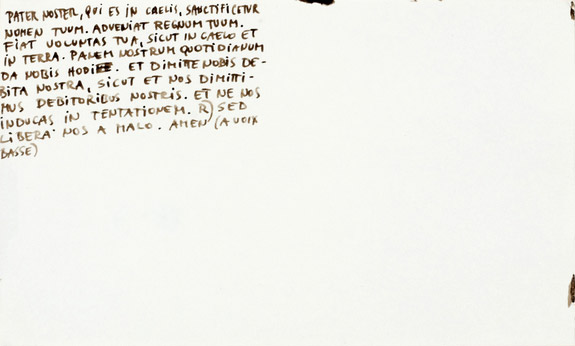 PATER NOSTER, QUI ES IN CAELIS, SANCTIFICETUR
NOMEN TUUM. ADVENIAT REGNUM TUUM.
FIAT VOLUNTAS TUA, SICUT IN CAELO ET
IN TERRA. PANEM NOSTRUM QUOTIDIANUM
DA NOBIS HODIE. ET DIMITTE NOBIS DE-
BITA NOSTRA, SICUT ET NOS DIMITTI-
MUS DEBITORIBUS NOSTRIS. ET NE NOS
INDUCAS IN TENTATIONEM. R) SED
LIBERA NOS A MALO. AMEN (A VOIX
BASSE)